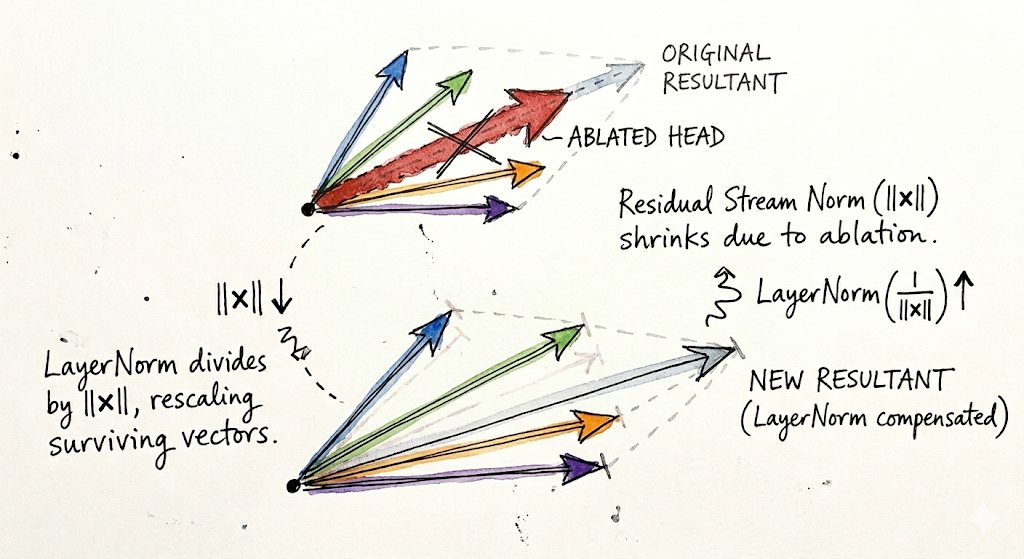 ORIGINAL
RESULTANT
ABLATED HEAD
Residual Stream Norm (||x||)
shrinks due to ablation.
||x|| ↓
LayerNorm (1/||x||) ↑
LayerNorm divides
by ||x||, rescaling
surviving vectors.
NEW RESULTANT
(LayerNorm compensated)